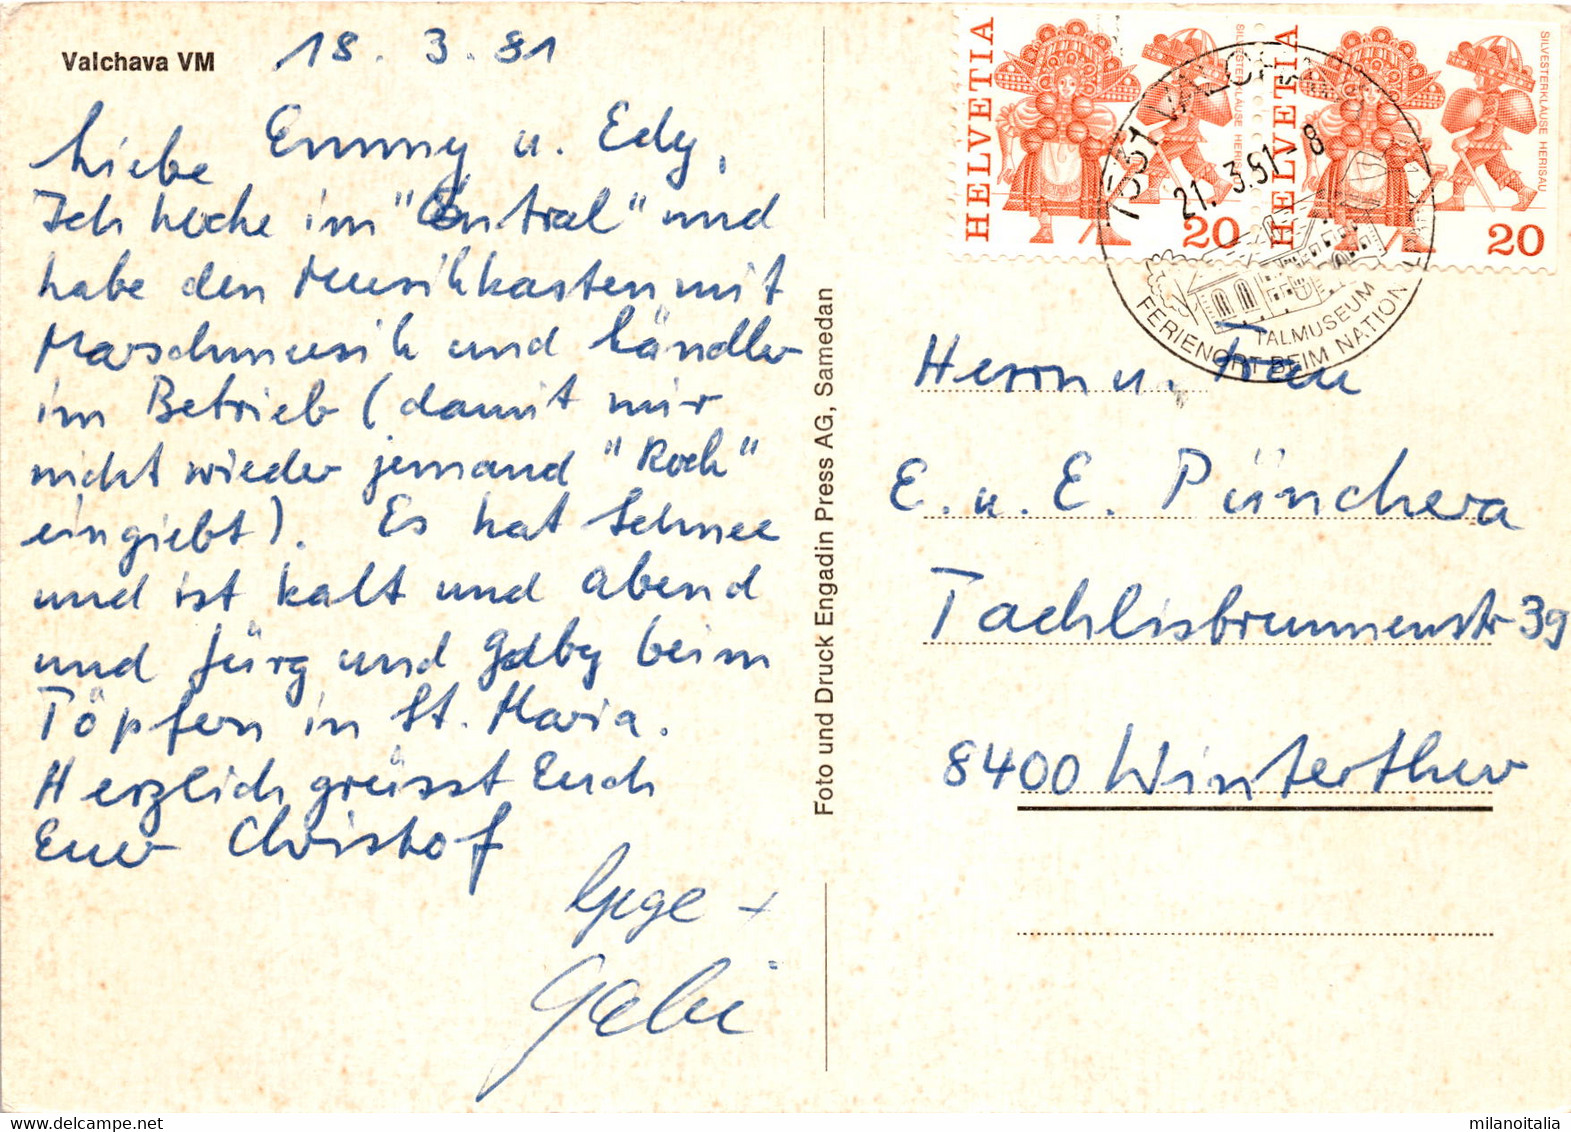 Valchava VM
18. 3. 81
Liebe Emmy u. Edy,
Ich hocke im "Central" und
habe den Musikkasten mit
Marschmusik und Ländler
im Betrieb (damit mir
nicht wieder jemand "Rock"
eingiebt). Es hat Schnee
und ist kalt und abend
und Jürg und Gaby beim
Töpfern in St. Maria.
Herzlich grüsst Euch
Euer Christof
+
Gabi
Foto und Druck Engadin Press AG, Samedan
HELVETIA
SILVESTERKLÄUSE HERISAU
20
HELVETIA
SILVESTERKLÄUSE HERISAU
20
7531 VALCHAVA
21. 3.81-8
TALMUSEUM
FERIENORT BEIM NATIONALPARK
Herrn u. Frau
E. u. E. Pünchera
Tachlisbrunnenstr 39
8400 Winterthur
milanoitalia